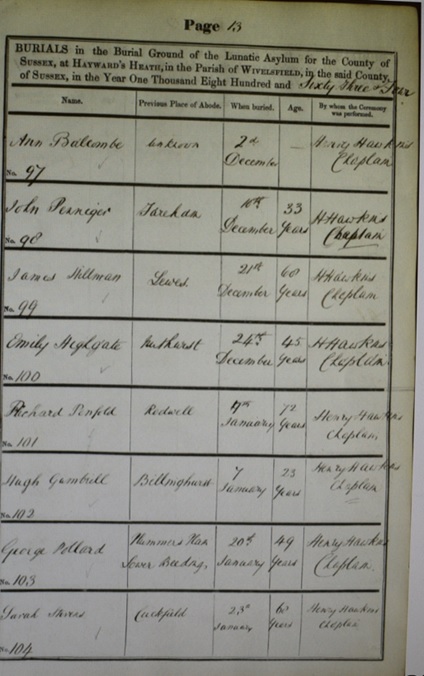 Page 13
BURIALS in the Burial Ground of the Lunatic Asylum for the County of
SUSSEX, at HAYWARD'S HEATH, in the Parish of WIVELSFIELD, in the said County,
of SUSSEX, in the Year One Thousand Eight Hundred and Sixty Three & Four
Name. Previous Place of Abode. When buried. Age. By whom the Ceremony
was performed.
Ann Balcombe unknown 2nd — Henry Hawkins
December Chaplain
No. 97
John Penniger 10th 33 H Hawkins
December Years Chaplain
No. 98
James Hillman Lewes 21st 60 H Hawkins
December Years Chaplain
No. 99
Emily 24th 45 H Hawkins
December Years Chaplain
No. 100
Richard Penfold 72 Henry Hawkins
January Years Chaplain
No. 101
Hugh Gumbrell Billinghurst 7 23 Henry Hawkins
January Years Chaplain
No. 102
George Pollard Plummers Plain 20th 49 Henry Hawkins
Lower Beeding January Years Chaplain
No. 103
Sarah Stevens Cuckfield 23d Henry Hawkins
January Years Chaplin
No. 104